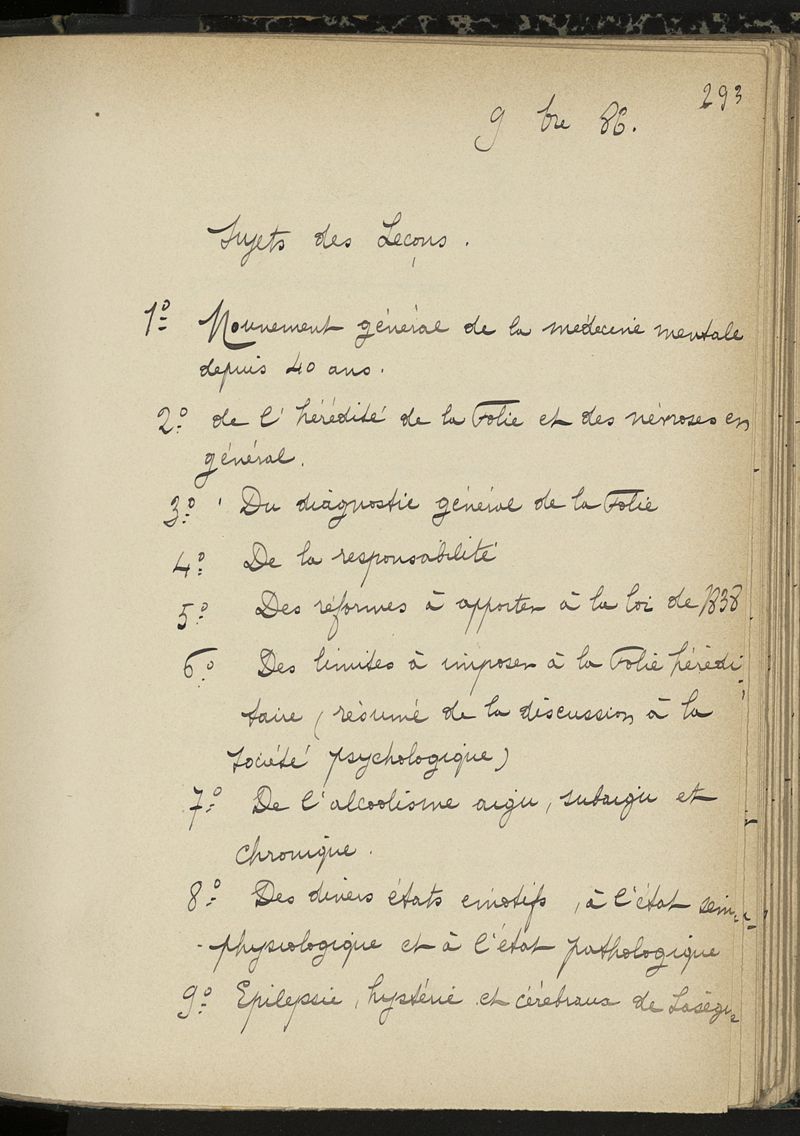 293
9 bre 86.
Sujets des Leçons.
1º Mouvement général de la médecine mentale
depuis 40 ans.
2º de l'hérédité de la Folie et des névroses en
général.
3º Du diagnostic général de la Folie
4º De la responsabilité
5º Des réformes à apporter à la loi de 1838
6º Des limites à imposer à la Folie hérédi
taire (résumé de la discussion à la
société psychologique)
7º De l'alcoolisme aigu, subaigu et
chronique.
8º Des divers états émotifs, à l'état semi-
physiologique et à l'état pathologique
9º Epilepsie, hystérie et cérébraux de Lasègue